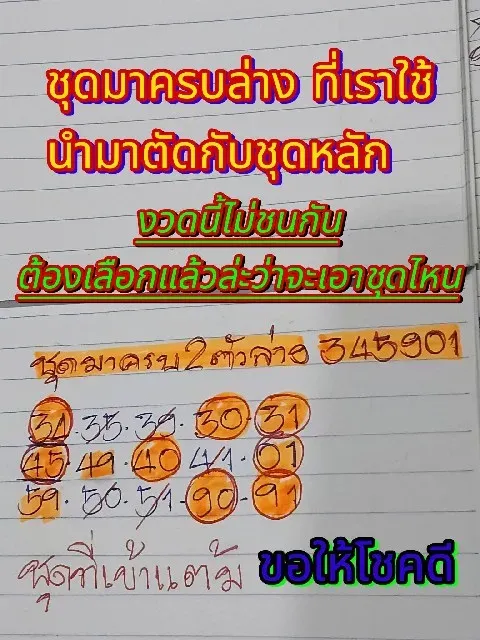 ชุดมาครบล่าง ที่เราใช้
นำมาตัดกับชุดหลัก
งวดนี้ไม่ชนกัน
ต้องเลือกแล้วล่ะว่าจะเอาชุดไหน
ชุดมาครบ 2 ตัวล่าง 345901
34·35·39·30·31
45·49·40·41·01
59·50·51·90·91
ชุดที่เข้าแต้ม ขอให้โชคดี